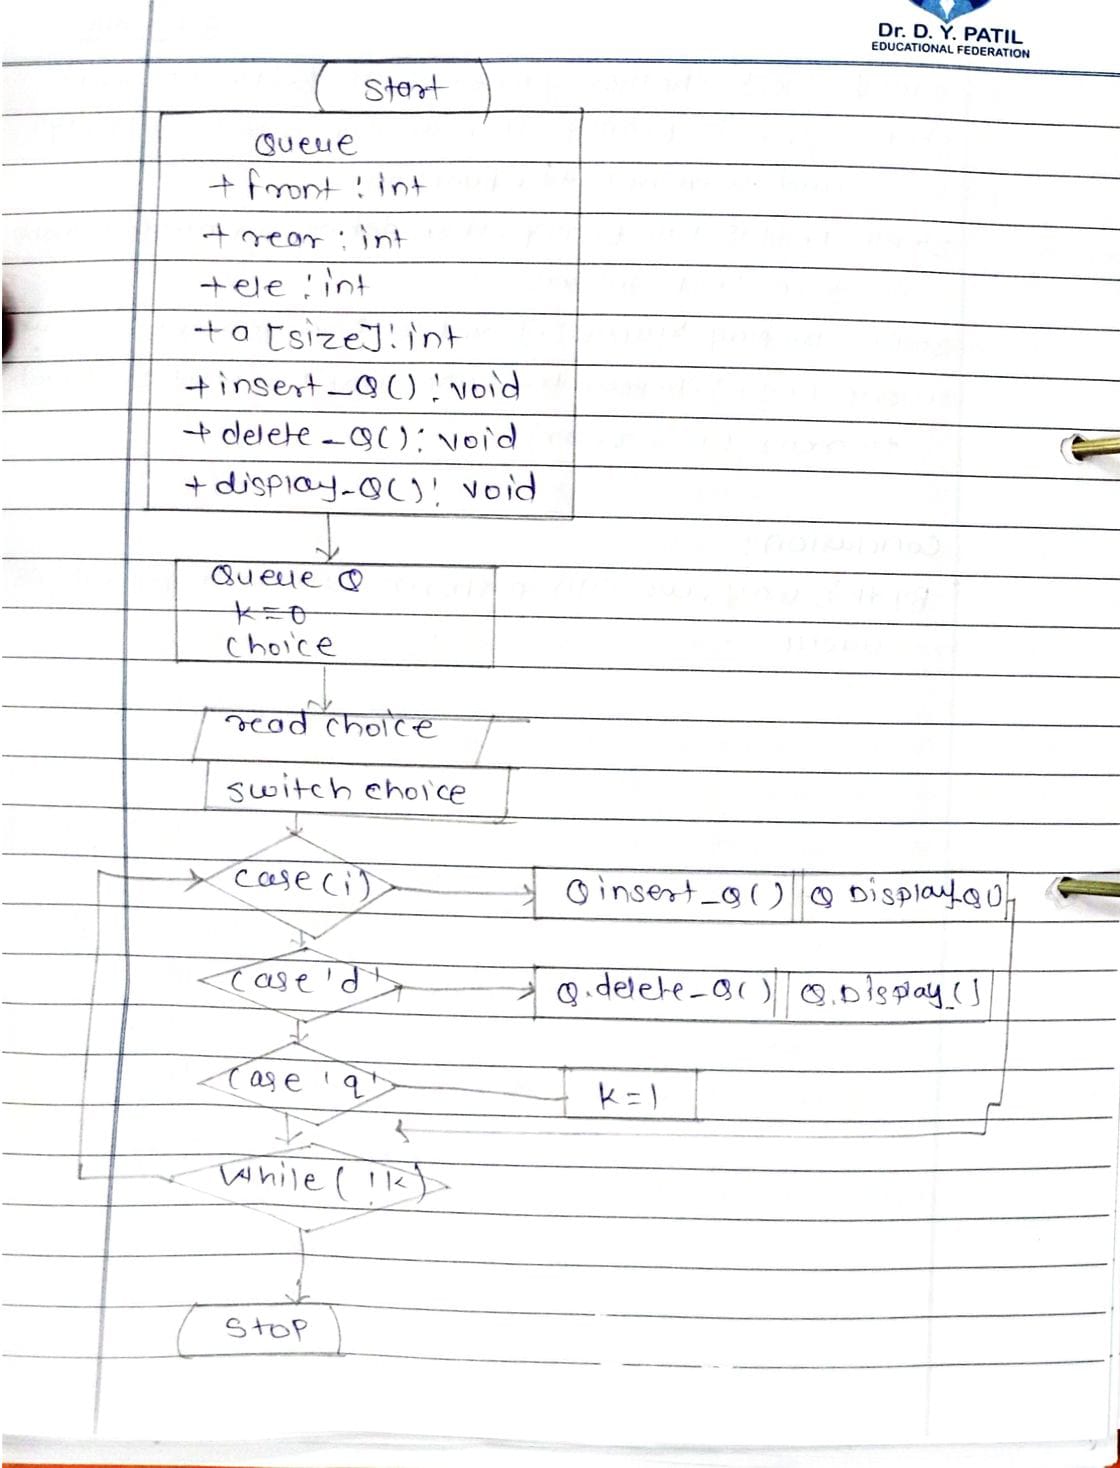 Dr. D. Y. PATIL
EDUCATIONAL FEDERATION
Start
Queue
+ front : int
+ rear : int
+ ele : int
+ a [size] : int
+ insert_Q() : void
+ delete_Q() : void
+ display_Q() : void
Queue Q
k=0
choice
read choice
switch choice
case (i) Q insert_Q() Q Display_Q()
case 'd' Q.delete_Q() Q.Display_()
case 'q' k=1
While ( !k)
Stop